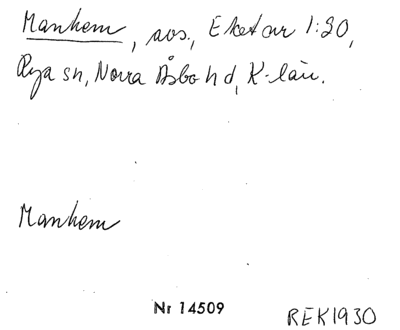 Manhem, avs., Eket nr 1:20,
Rya sn, Norra Åsbo hd, K-län.
Manhem
Nr 14509
REK1930